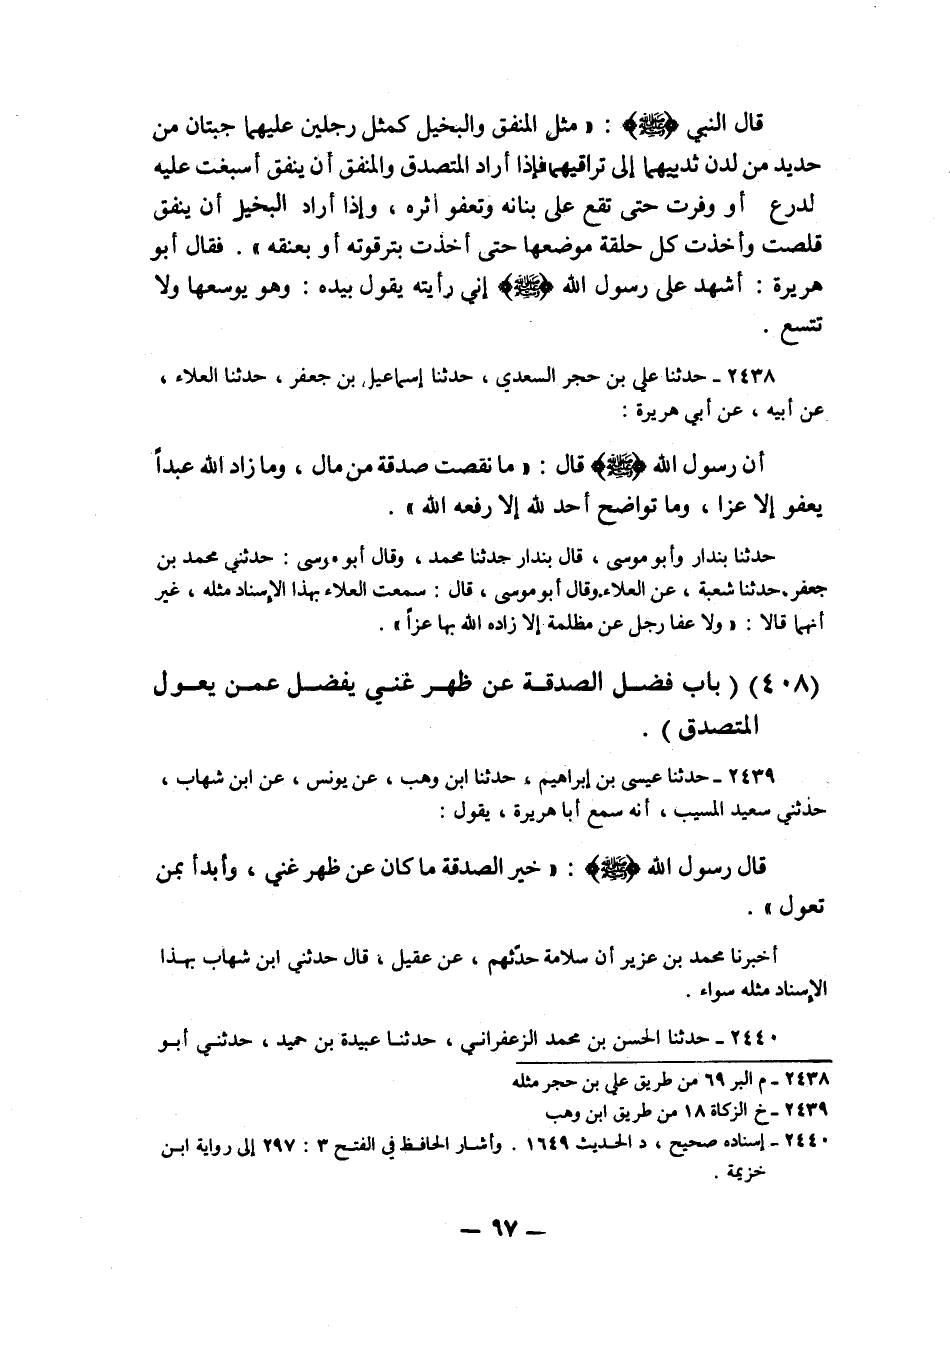 قال النبي ﴿ﷺ﴾ : « مثل المنفق والبخيل كمثل رجلين عليهما جبتان من
حديد من لدن ثدييهما إلى تراقيهما فإذا أراد المتصدق والمنفق أن ينفق أسبغت عليه
لدرع أو وفرت حتى تقع على بنانه وتعفو أثره ، وإذا أراد البخيل أن ينفق
قلصت وأخذت كل حلقة موضعها حتى أخذت بترقوته أو بعنقه » . فقال أبو
هريرة : أشهد على رسول الله ﴿ﷺ﴾ إني رأيته يقول بيده : وهو يوسعها ولا
تتسع .
٢٤٣٨ ـ حدثنا علي بن حجر السعدي ، حدثنا إسماعيل بن جعفر ، حدثنا العلاء ،
عن أبيه ، عن أبي هريرة :
أن رسول الله ﴿ﷺ﴾ قال : « ما نقصت صدقة من مال ، وما زاد الله عبداً
يعفو إلا عزا ، وما تواضح أحد لله إلا رفعه الله » .
حدثنا بندار وأبو موسى ، قال بندار حدثنا محمد ، وقال أبو موسى : حدثني محمد بن
جعفر ، حدثنا شعبة ، عن العلاء. وقال أبو موسى ، قال : سمعت العلاء بهذا الإسناد مثله ، غير
أنهما قالا : « ولا عفا رجل عن مظلمة إلا زاده الله بها عزاً » .
(٤٠٨) ( باب فضل الصدقة عن ظهر غني يفضل عمن يعول
المتصدق ) .
٢٤٣٩ ـ حدثنا عيسى بن إبراهيم ، حدثنا ابن وهب ، عن يونس ، عن ابن شهاب ،
حذثني سعيد المسيب ، أنه سمع أبا هريرة ، يقول :
قال رسول الله ﴿ﷺ﴾ : « خير الصدقة ما كان عن ظهر غني ، وأبدأ بمن
تعول » .
أخبرنا محمد بن عزير أن سلامة حدّثهم ، عن عقيل ، قال حدثني ابن شهاب بهذا
الإسناد مثله سواء .
٢٤٤٠ ـ حدثنا الحسن بن محمد الزعفراني ، حدثنا عبيدة بن حميد ، حدثني أبو
٢٤٣٨ ـ م البر ٦٩ من طريق علي بن حجر مثله
٢٤٣٩ ـ خ الزكاة ١٨ من طريق ابن وهب
٢٤٤٠ ـ إسناده صحيح ، د الحديث ١٦٤٩ . وأشار الحافظ في الفتح ٣ : ٢٩٧ إلى رواية ابن
خزيمة .
ـ ٩٧ ـ